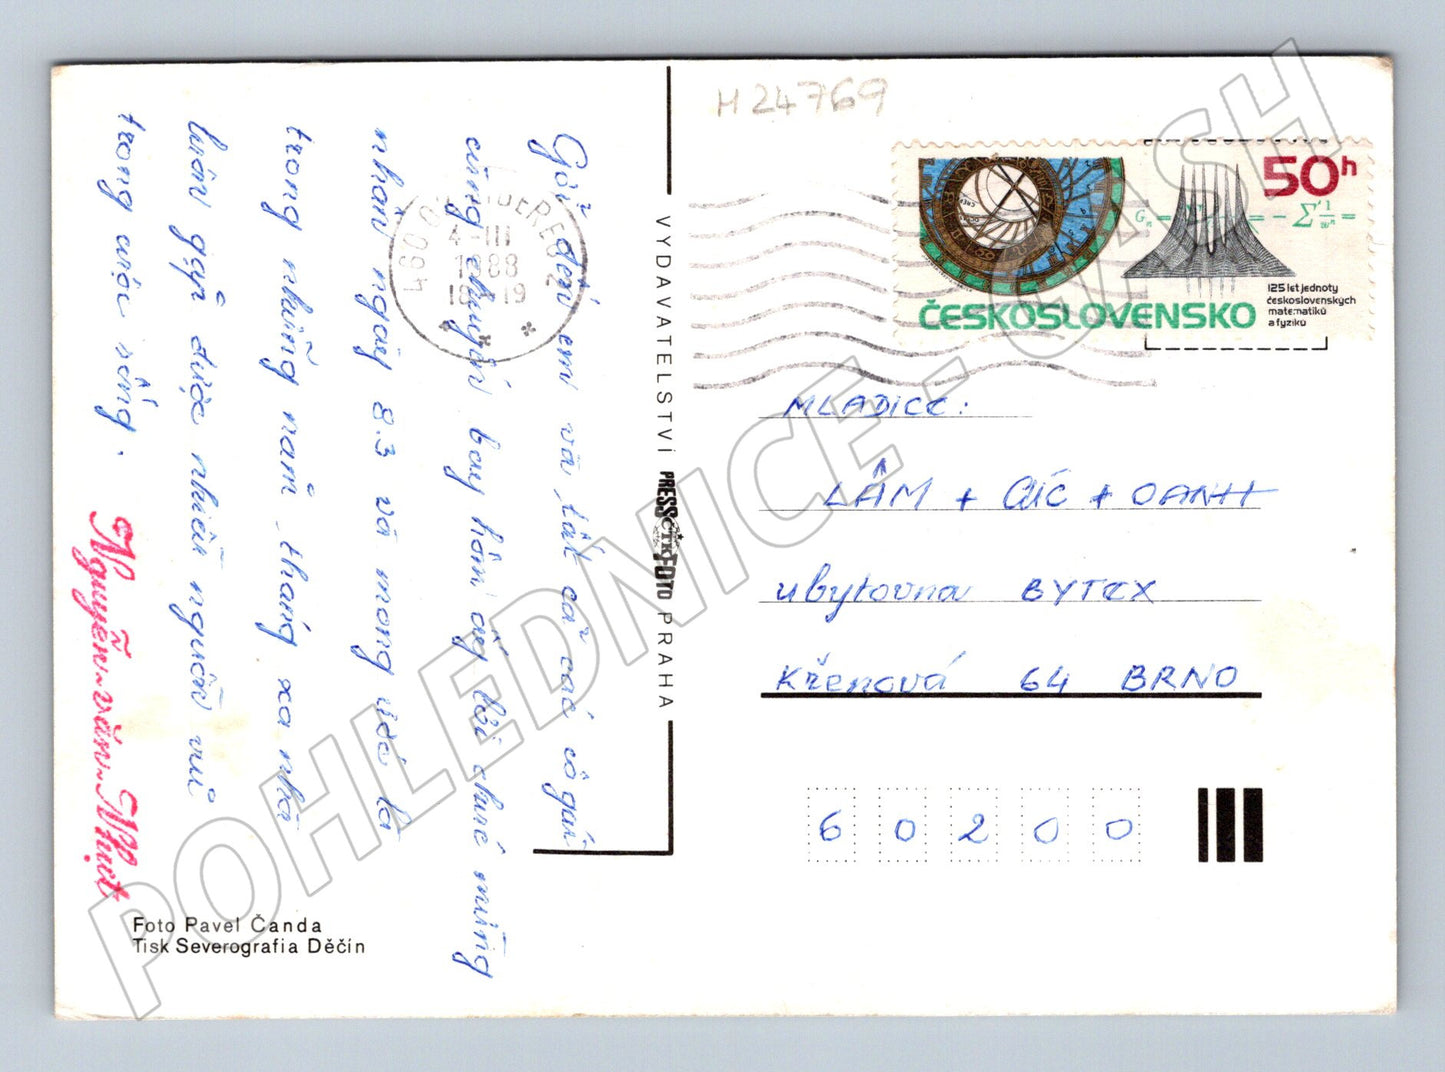 H 24769
50h
125 let jednoty
československých
matematiků
a fyziků
ČESKOSLOVENSKO
460 0 LIBEREC 2
4-III
1988
VYDAVATELSTVÍ PRESSFOTO PRAHA
ČTK
MLADICE:
LÂM + CÚC + OANH
ubytovna BYTEX
Křenová 64 BRNO
60200
Gởi đến em và tất cả các cô gái
cùng chuyến bay hôm ấy lời chúc mừng
nhân ngày 8.3 và mong ước là
trong những năm tháng xa nhà
luôn gặp được nhiều nguồn vui
trong cuộc sống.
Nguyễn-văn-Nhiệt
Foto Pavel Čanda
Tisk Severografia Děčín
POHLEDNICE - CASH